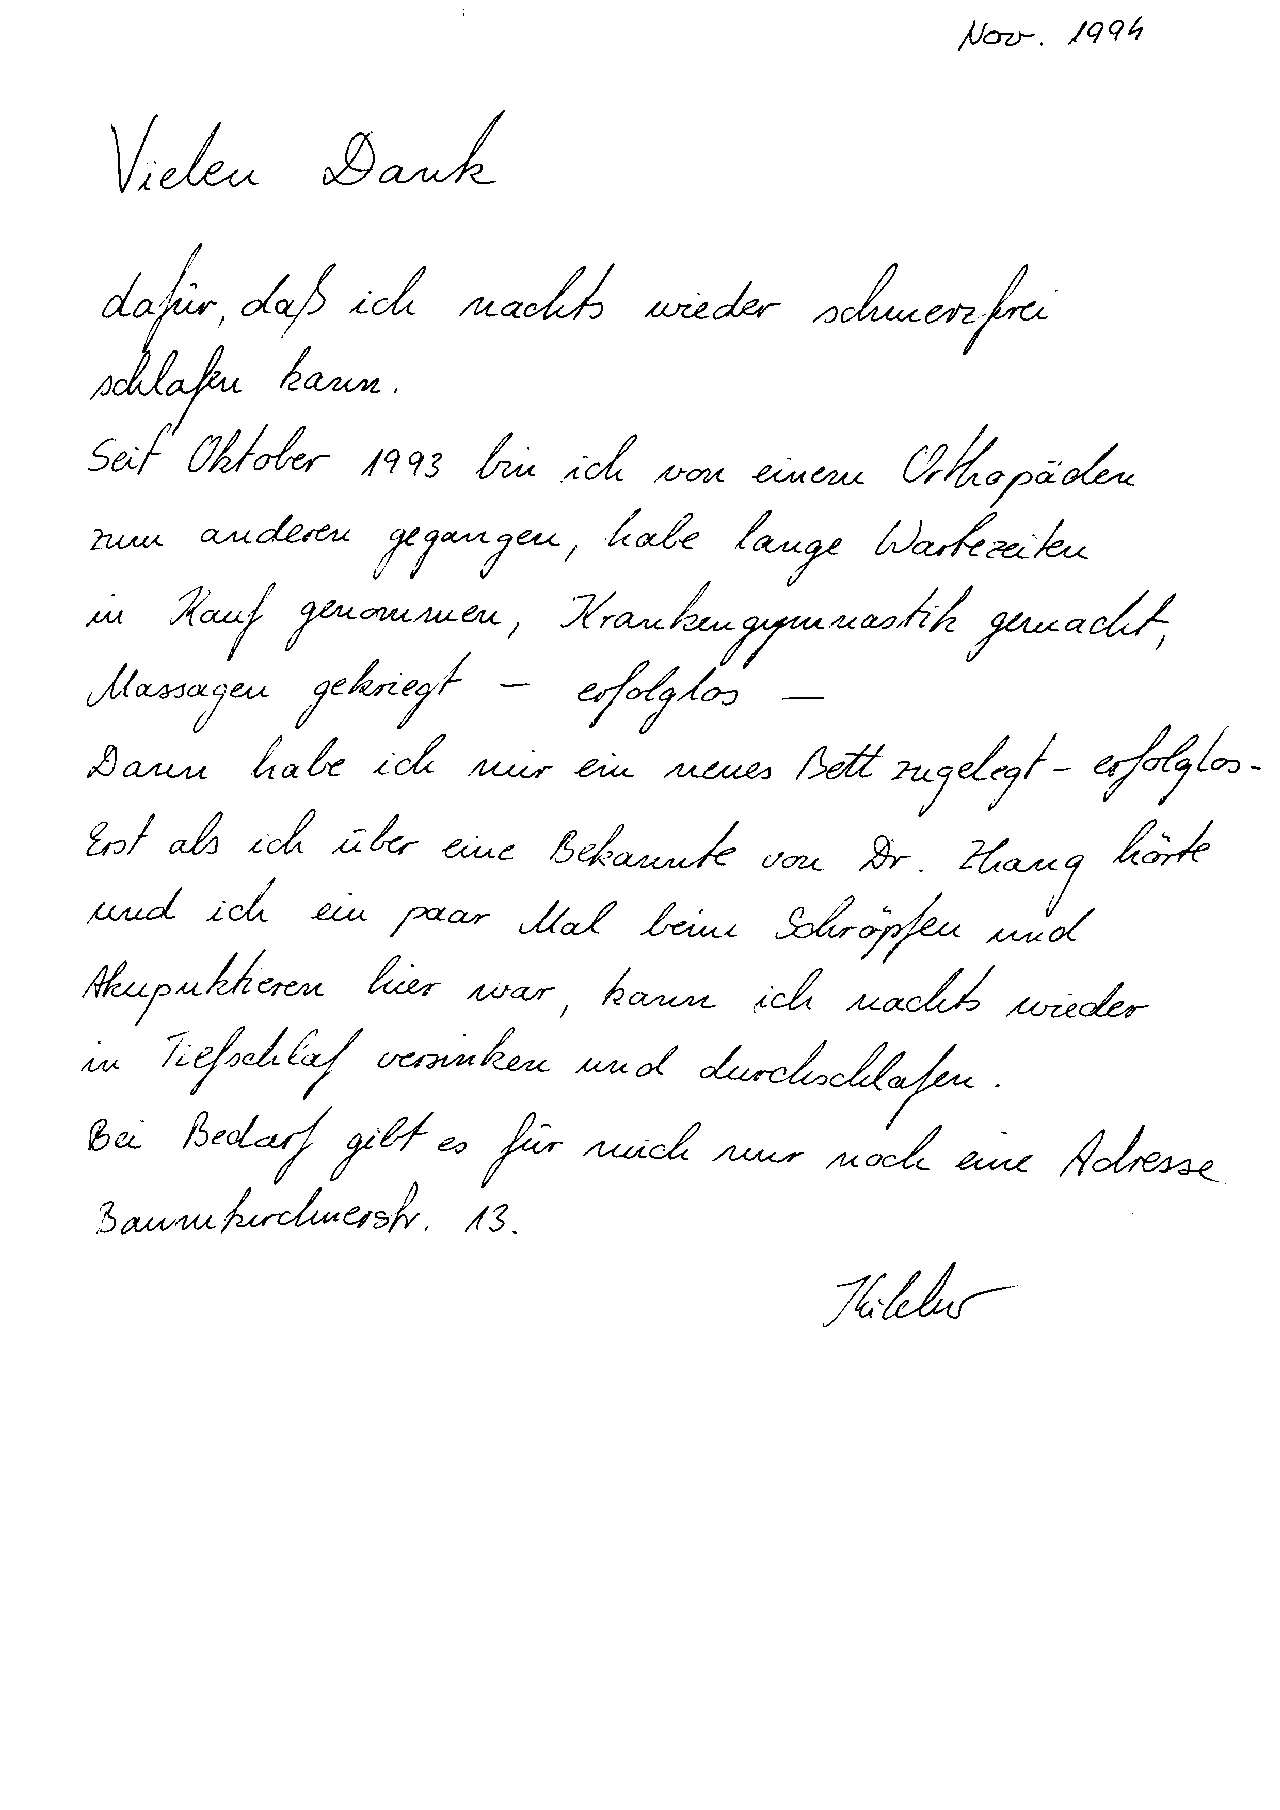 Nov. 1994
Vielen Dank
dafür, daß ich nachts wieder schmerzfrei
schlafen kann.
Seit Oktober 1993 bin ich von einem Orthopäden
zum anderen gegangen, habe lange Wartezeiten
in Kauf genommen, Krankengymnastik gemacht,
Massagen gekriegt – erfolglos –
Dann habe ich mir ein neues Bett zugelegt – erfolglos –
Erst als ich über eine Bekannte von Dr. Zhang hörte
und ich ein paar Mal beim Schröpfen und
Akupunktieren hier war, kann ich nachts wieder
in Tiefschlaf versinken und durchschlafen.
Bei Bedarf gibt es für mich nur noch eine Adresse
Baumkirchnerstr. 13.